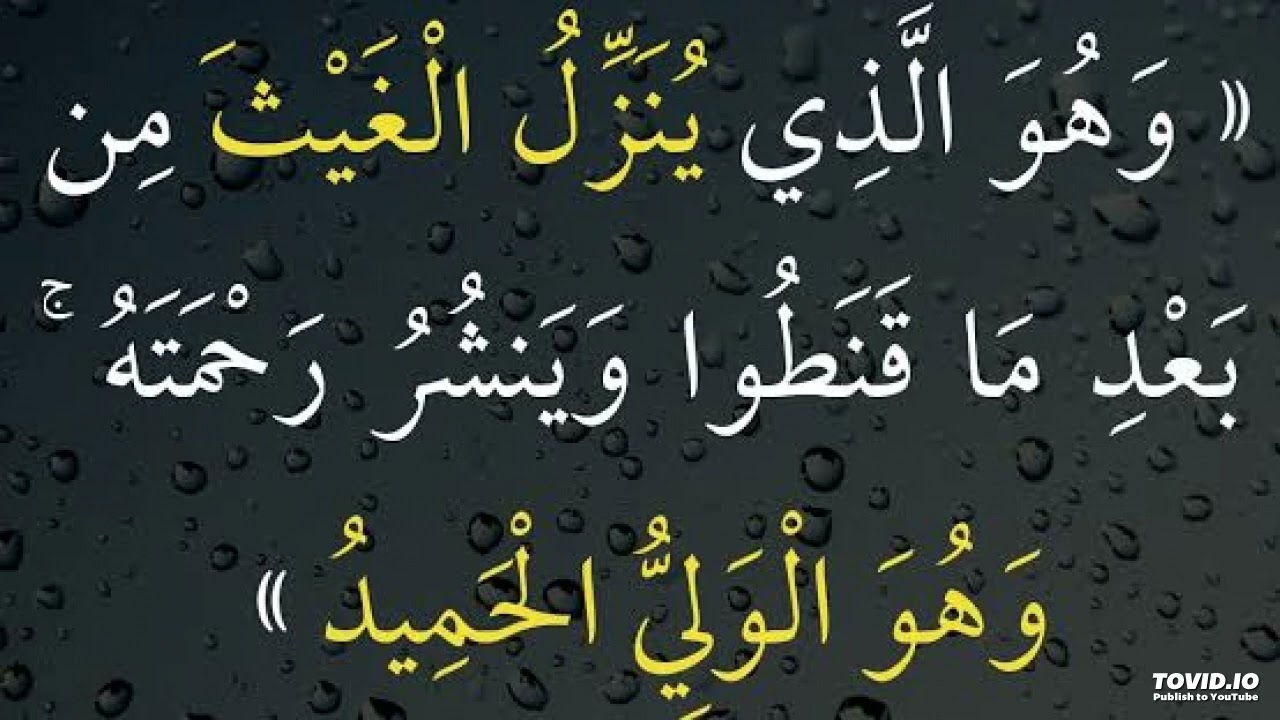 « وَهُوَ الَّذِي يُنَزِّلُ الْغَيْثَ مِن
بَعْدِ مَا قَنَطُوا وَيَنشُرُ رَحْمَتَهُ ۚ
وَهُوَ الْوَلِيُّ الْحَمِيدُ »
TOVID.IO
Publish to YouTube